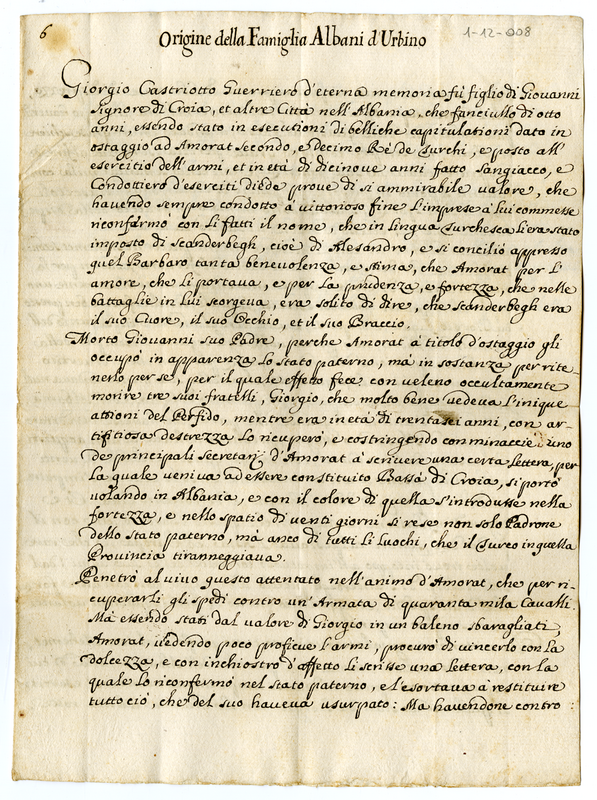 6
1-12-008
Origine della Famiglia Albani d'Urbino
Giorgio Castriotto Guerriero d'eterna memoria fù figlio di Giovanni
Signore di Croia, et altre Città nell'Albania, che fanciullo di otto
anni, essendo stato in esecutioni di belliche capitulationi dato in
ostaggio ad Amorat Secondo, e decimo Rè de Turchi, e posto all'
esercitio dell'armi, et in età di dicinove anni fatto Sangiacco, e
Condottiero d'eserciti diede prove di si ammirabile valore, che
havendo sempre condotto à vittorioso fine l'imprese à lui commesse
riconfermò con li fatti il nome, che in lingua Turchesca l'era stato
imposto di Scanderbegh, cioè di Alesandro, e si conciliò appresso
quel Barbaro tanta benevolenza, e stima, che Amorat per l'
amore, che li portava, e per la prudenza, e fortezza, che nelle
battaglie in lui scorgeva, era solito di dire, che Scanderbegh era
il suo Cuore, il suo Occhio, et il suo Braccio.
Morto Giovanni suo Padre, perche Amorat à titolo d'ostaggio gli
occupò in apparenza lo stato paterno, mà in sostanza per rite-
nerlo per se, per il quale effetto fece con veleno occultamente
morire tre suoi fratelli, Giorgio, che molto bene vedeva l'inique
attioni del Perfido, mentre era in età di trentasei anni, con ar-
tifitiosa destrezza lo ricuperò, e costringendo con minaccie uno
de principali Secretarij d'Amorat à scrivere una certa lettera, per
la quale veniva ad essere constituito Bassà di Croia, si portò
volando in Albania, e con il colore di quella s'introdusse nella
fortezza, e nello spatio di venti giorni si rese non solo Padrone
dello Stato paterno, mà anco di tutti li luochi, che il Turco in quella
Provincia tiranneggiava.
Penetrò al vivo questo attentato nell'animo d'Amorat, che per ri-
cuperarli gli spedì contro un'Armata di quaranta mila Cavalli.
Mà essendo stati dal valore di Giorgio in un baleno sbaragliati,
Amorat, vedendo poco proficue l'armi, procurò di vincerlo con la
dolcezza, e con inchiostro d'affetto li scrisse una lettera, con la
quale lo riconfermò nel stato paterno, e l'esortava à restituire
tutto ciò, che del suo haveva usurpato: Ma havendone contro: